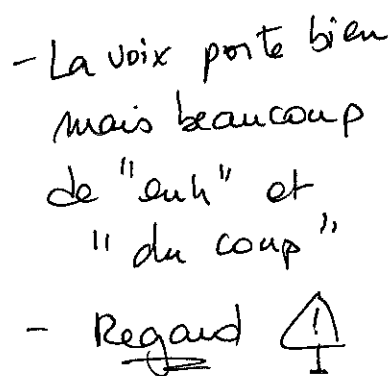 - La voix porte bien
mais beaucoup
de "euh" et
"du coup"
- Regard !